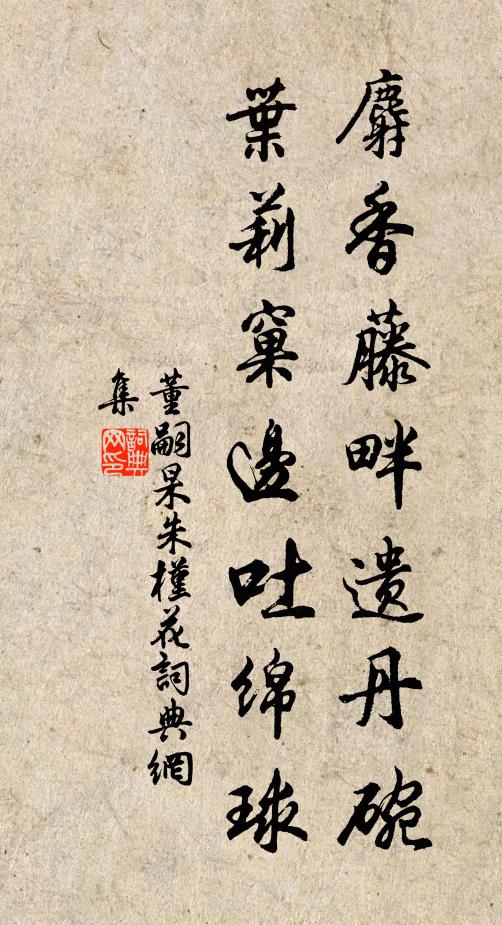 麝香藤畔遗丹碗
葉莿窠邊吐綿球
董嗣杲朱槿花詞典網
集
詞典网印